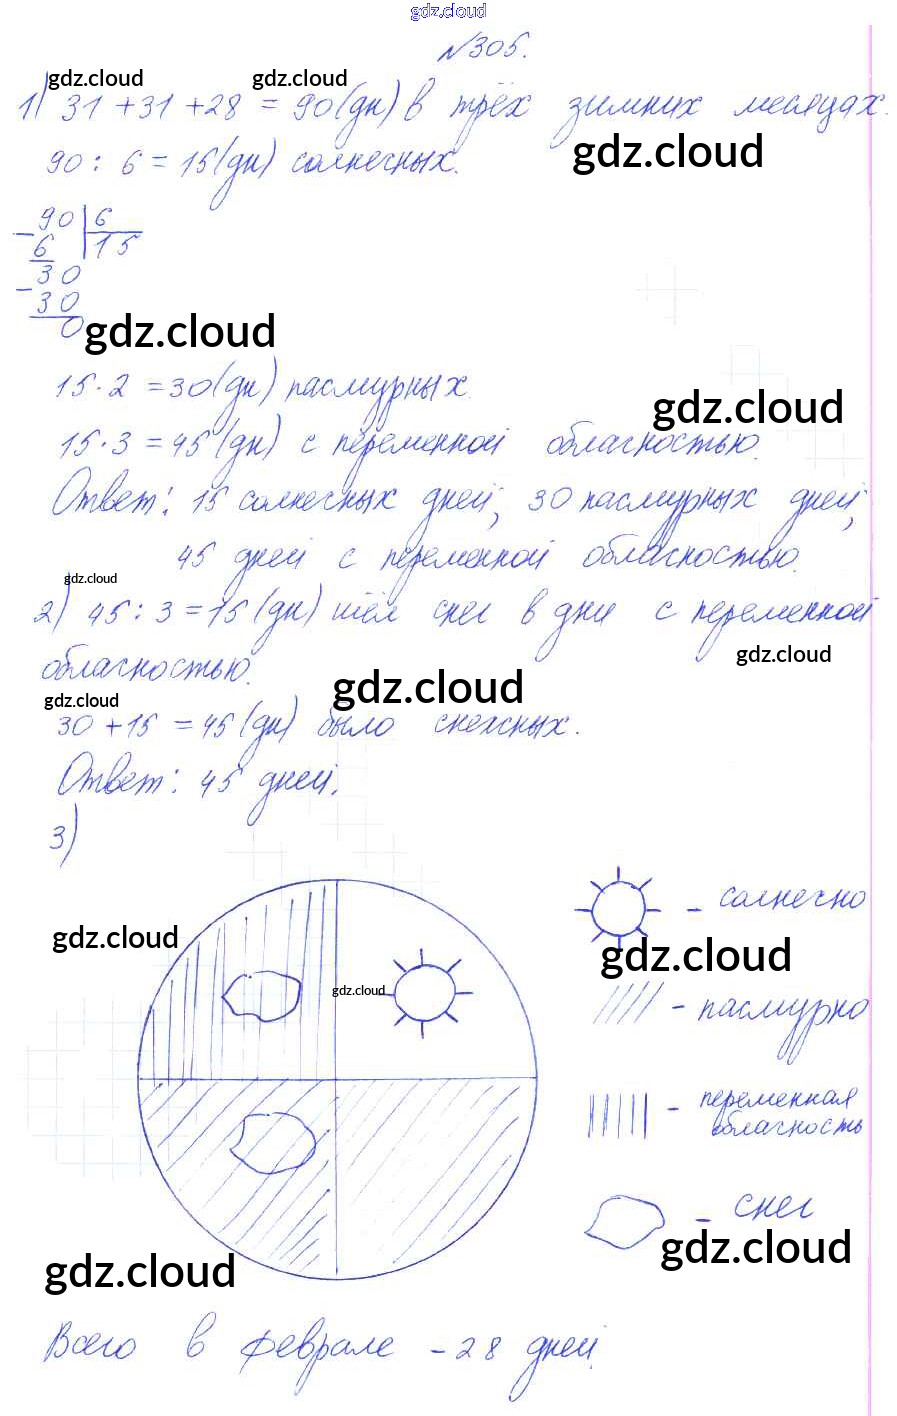 gdz.cloud
№305.
gdz.cloud gdz.cloud
1) 31 + 31 + 28 = 90 (дн) в трёх зимних месяцах.
gdz.cloud
90 : 6 = 15 (дн) солнечных.
90 | 6
- 6 | 15
30
- 30
0
gdz.cloud
15 · 2 = 30 (дн) пасмурных
gdz.cloud
15 · 3 = 45 (дн) с переменной облачностью.
Ответ: 15 солнечных дней, 30 пасмурных дней,
45 дней с переменной облачностью.
gdz.cloud
2) 45 : 3 = 15 (дн) шёл снег в дни с переменной
gdz.cloud
облачностью.
gdz.cloud
gdz.cloud
30 + 15 = 45 (дн) было снежных.
Ответ: 45 дней.
3)
- солнечно
gdz.cloud
gdz.cloud
gdz.cloud
- пасмурно
- переменная
облачность
- снег
gdz.cloud
gdz.cloud
Всего в феврале - 28 дней.